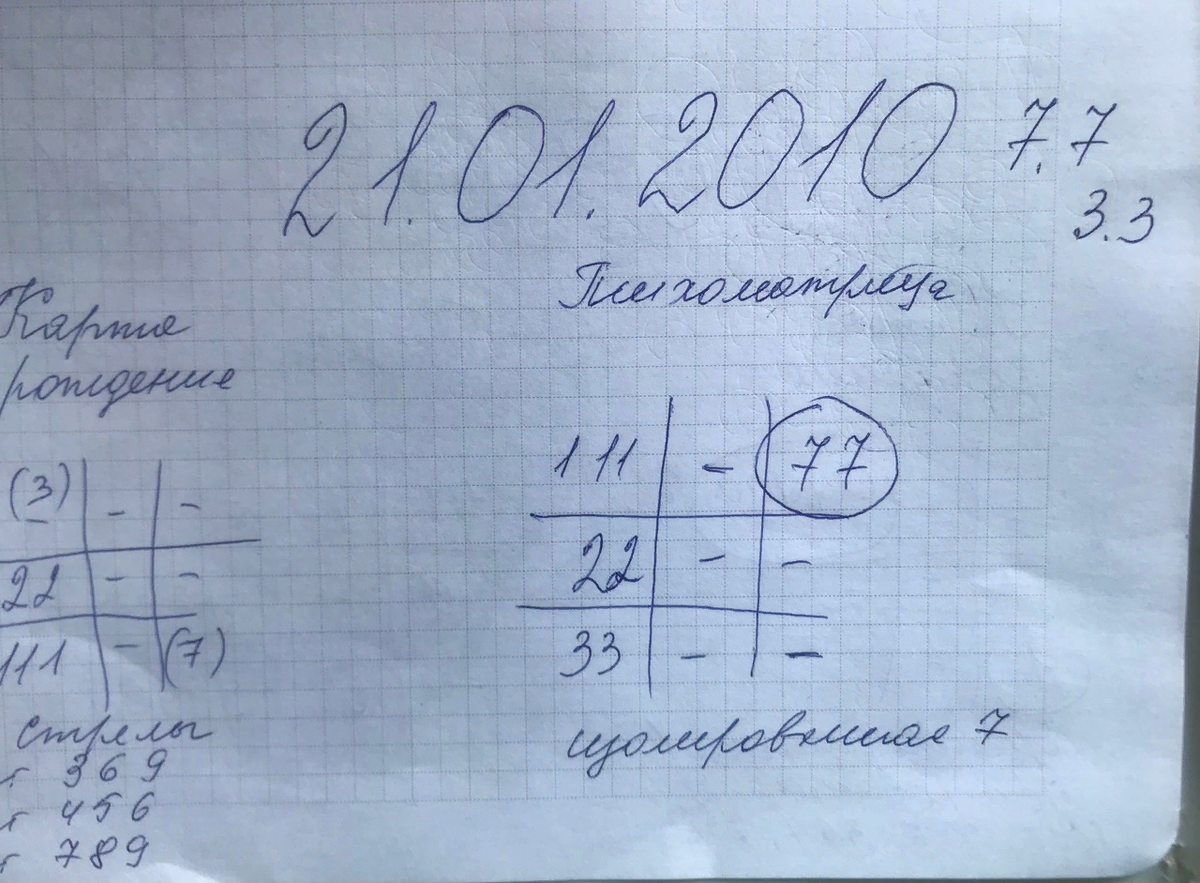 21.01.2010 7.7
3.3
Психоматрица
Карта
рождение
(3) - -
22 - -
111 - (7)
111 - 77
22 - -
33 - -
стрелы
369
456
789
изолированная 7